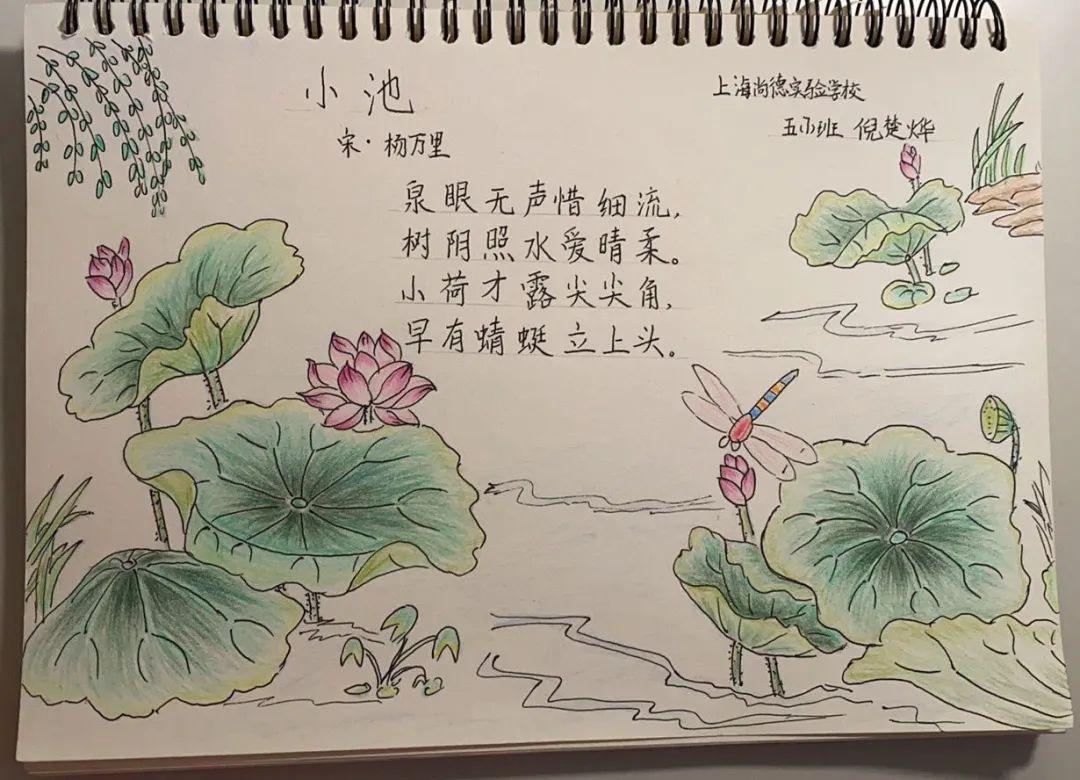 小池
宋·杨万里
上海尚德实验学校
五小班 倪楚烨
泉眼无声惜细流,
树阴照水爱晴柔。
小荷才露尖尖角,
早有蜻蜓立上头。